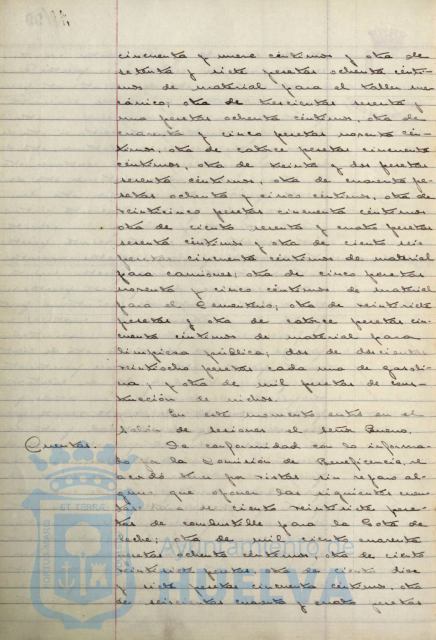 cincuenta y nueve céntimos y otra de
setenta y siete pesetas ochenta cénti-
mos de material para el taller me-
cánico; otra de trescientas sesenta y
una pesetas ochenta céntimos, otra de
cuarenta y cinco pesetas noventa cén-
timos, otra de catorce pesetas cincuenta
céntimos, otra de treinta y dos pesetas
sesenta céntimos, otra de cuarenta pe-
setas ochenta y cinco céntimos, otra de
veinticinco pesetas cincuenta céntimos
otra de ciento sesenta y cuatro pesetas
sesenta céntimos y otra de ciento seis
pesetas cincuenta céntimos de material
para camiones; otra de cinco pesetas
noventa y cinco céntimos de material
para el Cementerio; otra de veintisiete
pesetas y otra de catorce pesetas cin-
cuenta céntimos de material para
limpieza pública; dos de doscientas
veintiocho pesetas cada una de gasoli-
na, y otra de mil pesetas de cons-
trucción de nichos.
En este momento entró en el
Salón de sesiones el señor Bueno.
Cuentas. De conformidad con lo informa-
do por la Comisión de Beneficencia, se
acordó tener por vistas sin reparo al-
guno que oponer las siguientes cuen-
tas: de ciento veintisiete pese-
tas de combustible para la Gota de
leche; otra de mil ciento cuarenta
pesetas ochenta céntimos, otra de ciento
veintisiete pesetas, otra de ciento diez
y siete pesetas cincuenta céntimos, otra
de seiscientas cuarenta y cuatro pesetas
Ayuntamiento de
HUELVA